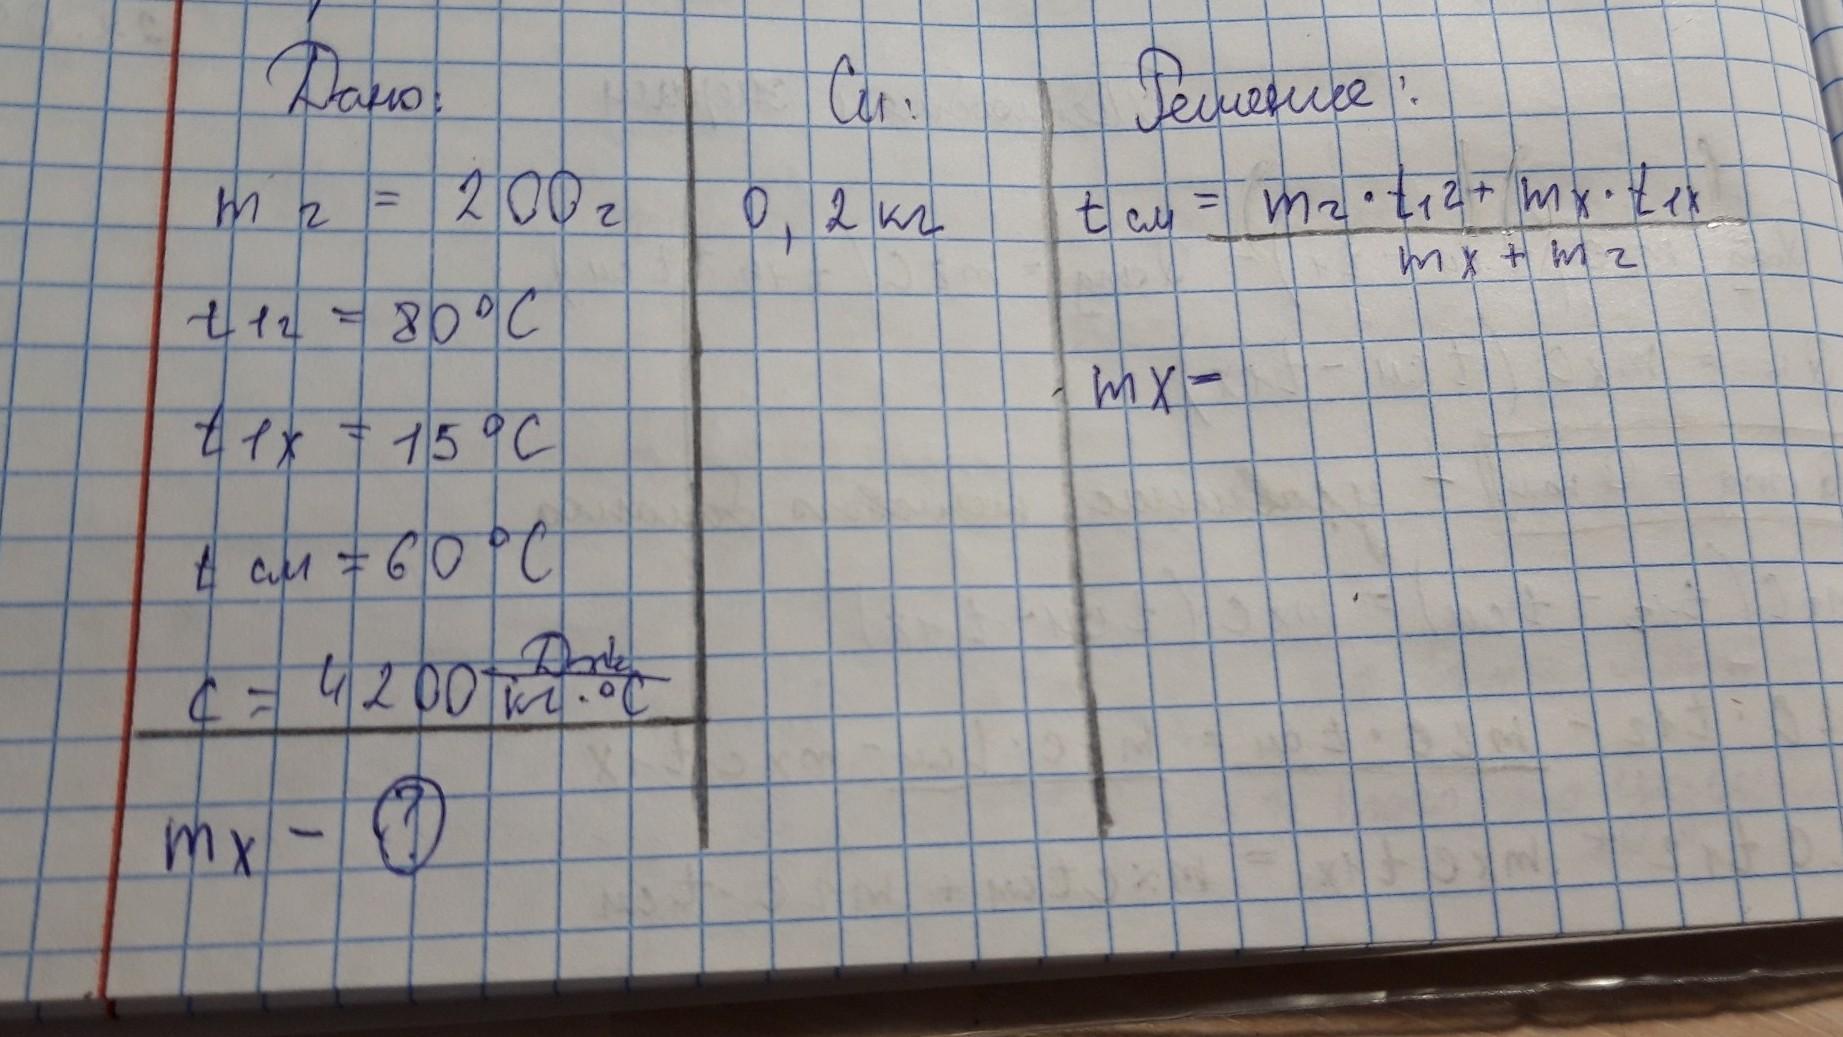 Дано:
mг = 200г
t1г = 80°C
t1x = 15°C
t см = 60°C
c = 4200 Дж/кг·°C
mx - ?
Си:
0,2 кг
Решение:
t см = mг·t1г + mx·t1x
mx + mг
mx =